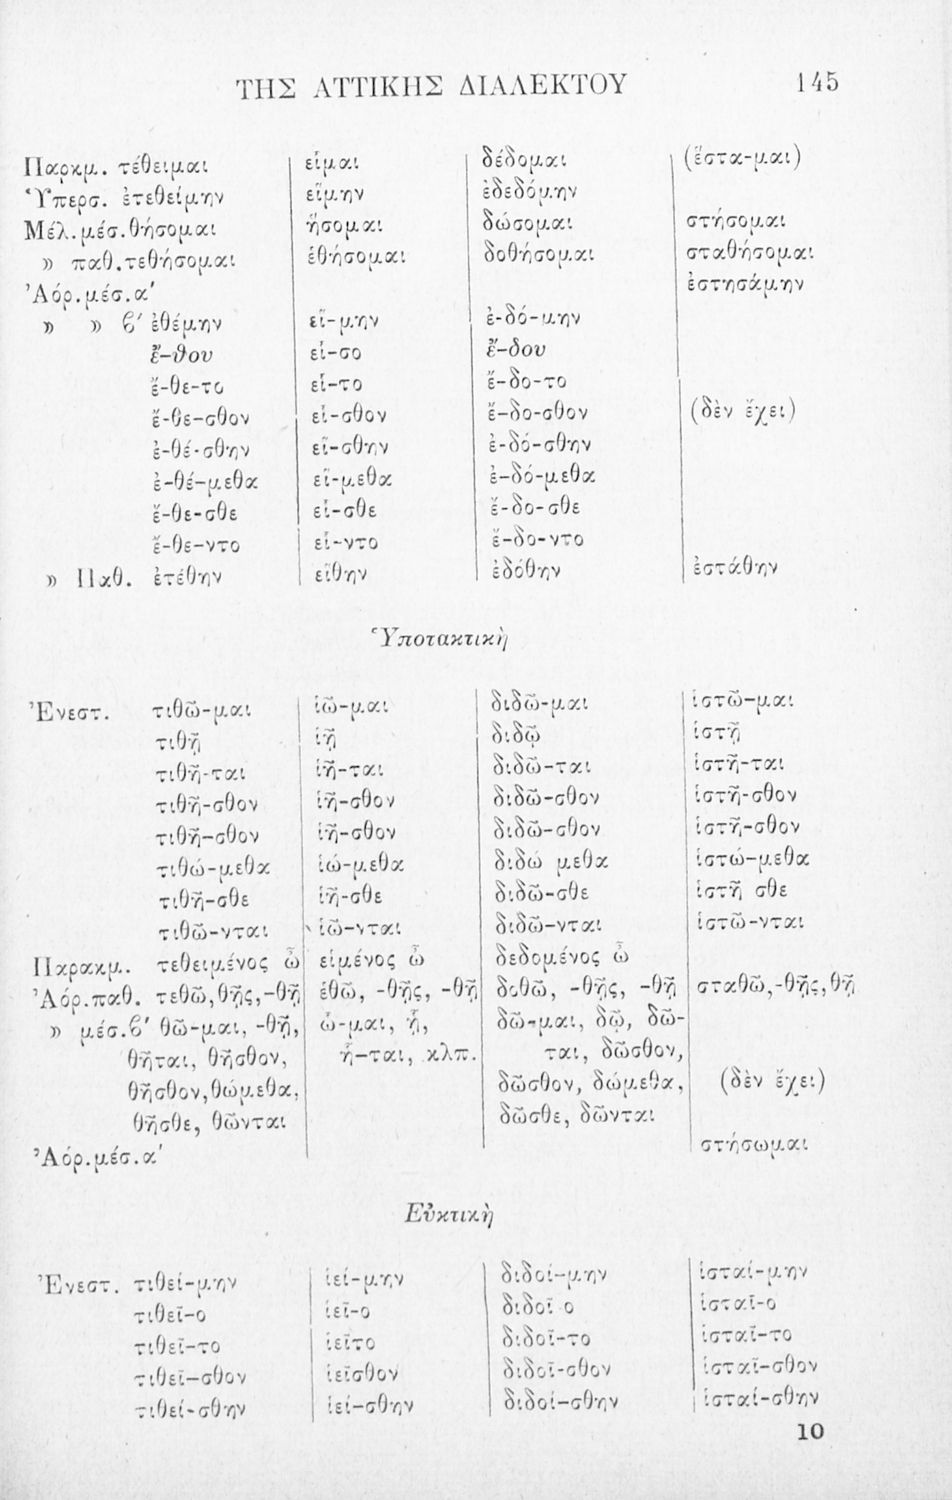 ΤΗΣ ΑΤΤΙΚΗΣ ΔΙΑΛΕΚΤΟΥ 145
Παρκμ. τέθειμαι εἷμαι δέδομαι (ἕστα-μαι)
Ὑπερσ. ἐτεθείμην εἵμην ἐδεδόμην
Μέλ.μέσ.θήσομαι ἥσομαι δώσομαι στήσομαι
» παθ.τεθήσομαι ἑθήσομαι δοθήσομαι σταθήσομαι
Ἀόρ.μέσ.α' ἐστησάμην
» » ϐ' ἐθέμην εἵ-μην ἐ-δό-μην
ἔ-θου εἷ-σο ἔ-δου
ἔ-θε-το εἷ-το ἔ-δο-το
ἔ-θε-σθον εἷ-σθον ἔ-δο-σθον (δὲν ἔχει)
ἐ-θέ-σθην εἵ-σθην ἐ-δό-σθην
ἐ-θέ-μεθα εἵ-μεθα ἐ-δό-μεθα
ἔ-θε-σθε εἷ-σθε ἔ-δο-σθε
ἔ-θε-ντο εἷ-ντο ἔ-δο-ντο
» Παθ. ἐτέθην εἵθην ἐδόθην ἐστάθην
Ὑποτακτικὴ
Ἐνεστ. τιθῶ-μαι ἱῶ-μαι διδῶ-μαι ἱστῶ-μαι
τιθῇ ἱῇ διδῷ ἱστῇ
τιθῆ-ται ἱῆ-ται διδῶ-ται ἱστῆ-ται
τιθῆ-σθον ἱῆ-σθον διδῶ-σθον ἱστῆ-σθον
τιθῆ-σθον ἱῆ-σθον διδῶ-σθον ἱστῆ-σθον
τιθώ-μεθα ἱώ-μεθα διδώ μεθα ἱστώ-μεθα
τιθῆ-σθε ἱῆ-σθε διδῶ-σθε ἱστῆ σθε
τιθῶ-νται ἱῶ-νται διδῶ-νται ἱστῶ-νται
Παρακμ. τεθειμένος ὦ εἱμένος ὦ δεδομένος ὦ
Ἀόρ.παθ. τεθῶ,θῇς,-θῇ ἑθῶ, -θῇς, -θῇ δοθῶ, -θῇς, -θῇ σταθῶ,-θῇς,θῇ
» μέσ.ϐ' θῶ-μαι, -θῇ, ὧ-μαι, ᾗ, δῶ-μαι, δῷ, δῶ-
θῆται, θῆσθον, ἧ-ται, κλπ. ται, δῶσθον,
θῆσθον,θώμεθα, δῶσθον, δώμεθα, (δὲν ἔχει)
θῆσθε, θῶνται δῶσθε, δῶνται
Ἀόρ.μέσ.α' στήσωμαι
Εὐκτικὴ
Ἐνεστ. τιθεί-μην ἱεί-μην διδοί-μην ἱσταί-μην
τιθεῖ-ο ἱεῖ-ο διδοῖ ο ἱσταῖ-ο
τιθεῖ-το ἱεῖτο διδοῖ-το ἱσταῖ-το
τιθεῖ-σθον ἱεῖσθον διδοῖ-σθον ἱσταῖ-σθον
τιθεί-σθην ἱεί-σθην διδοί-σθην ἱσταί-σθην
10